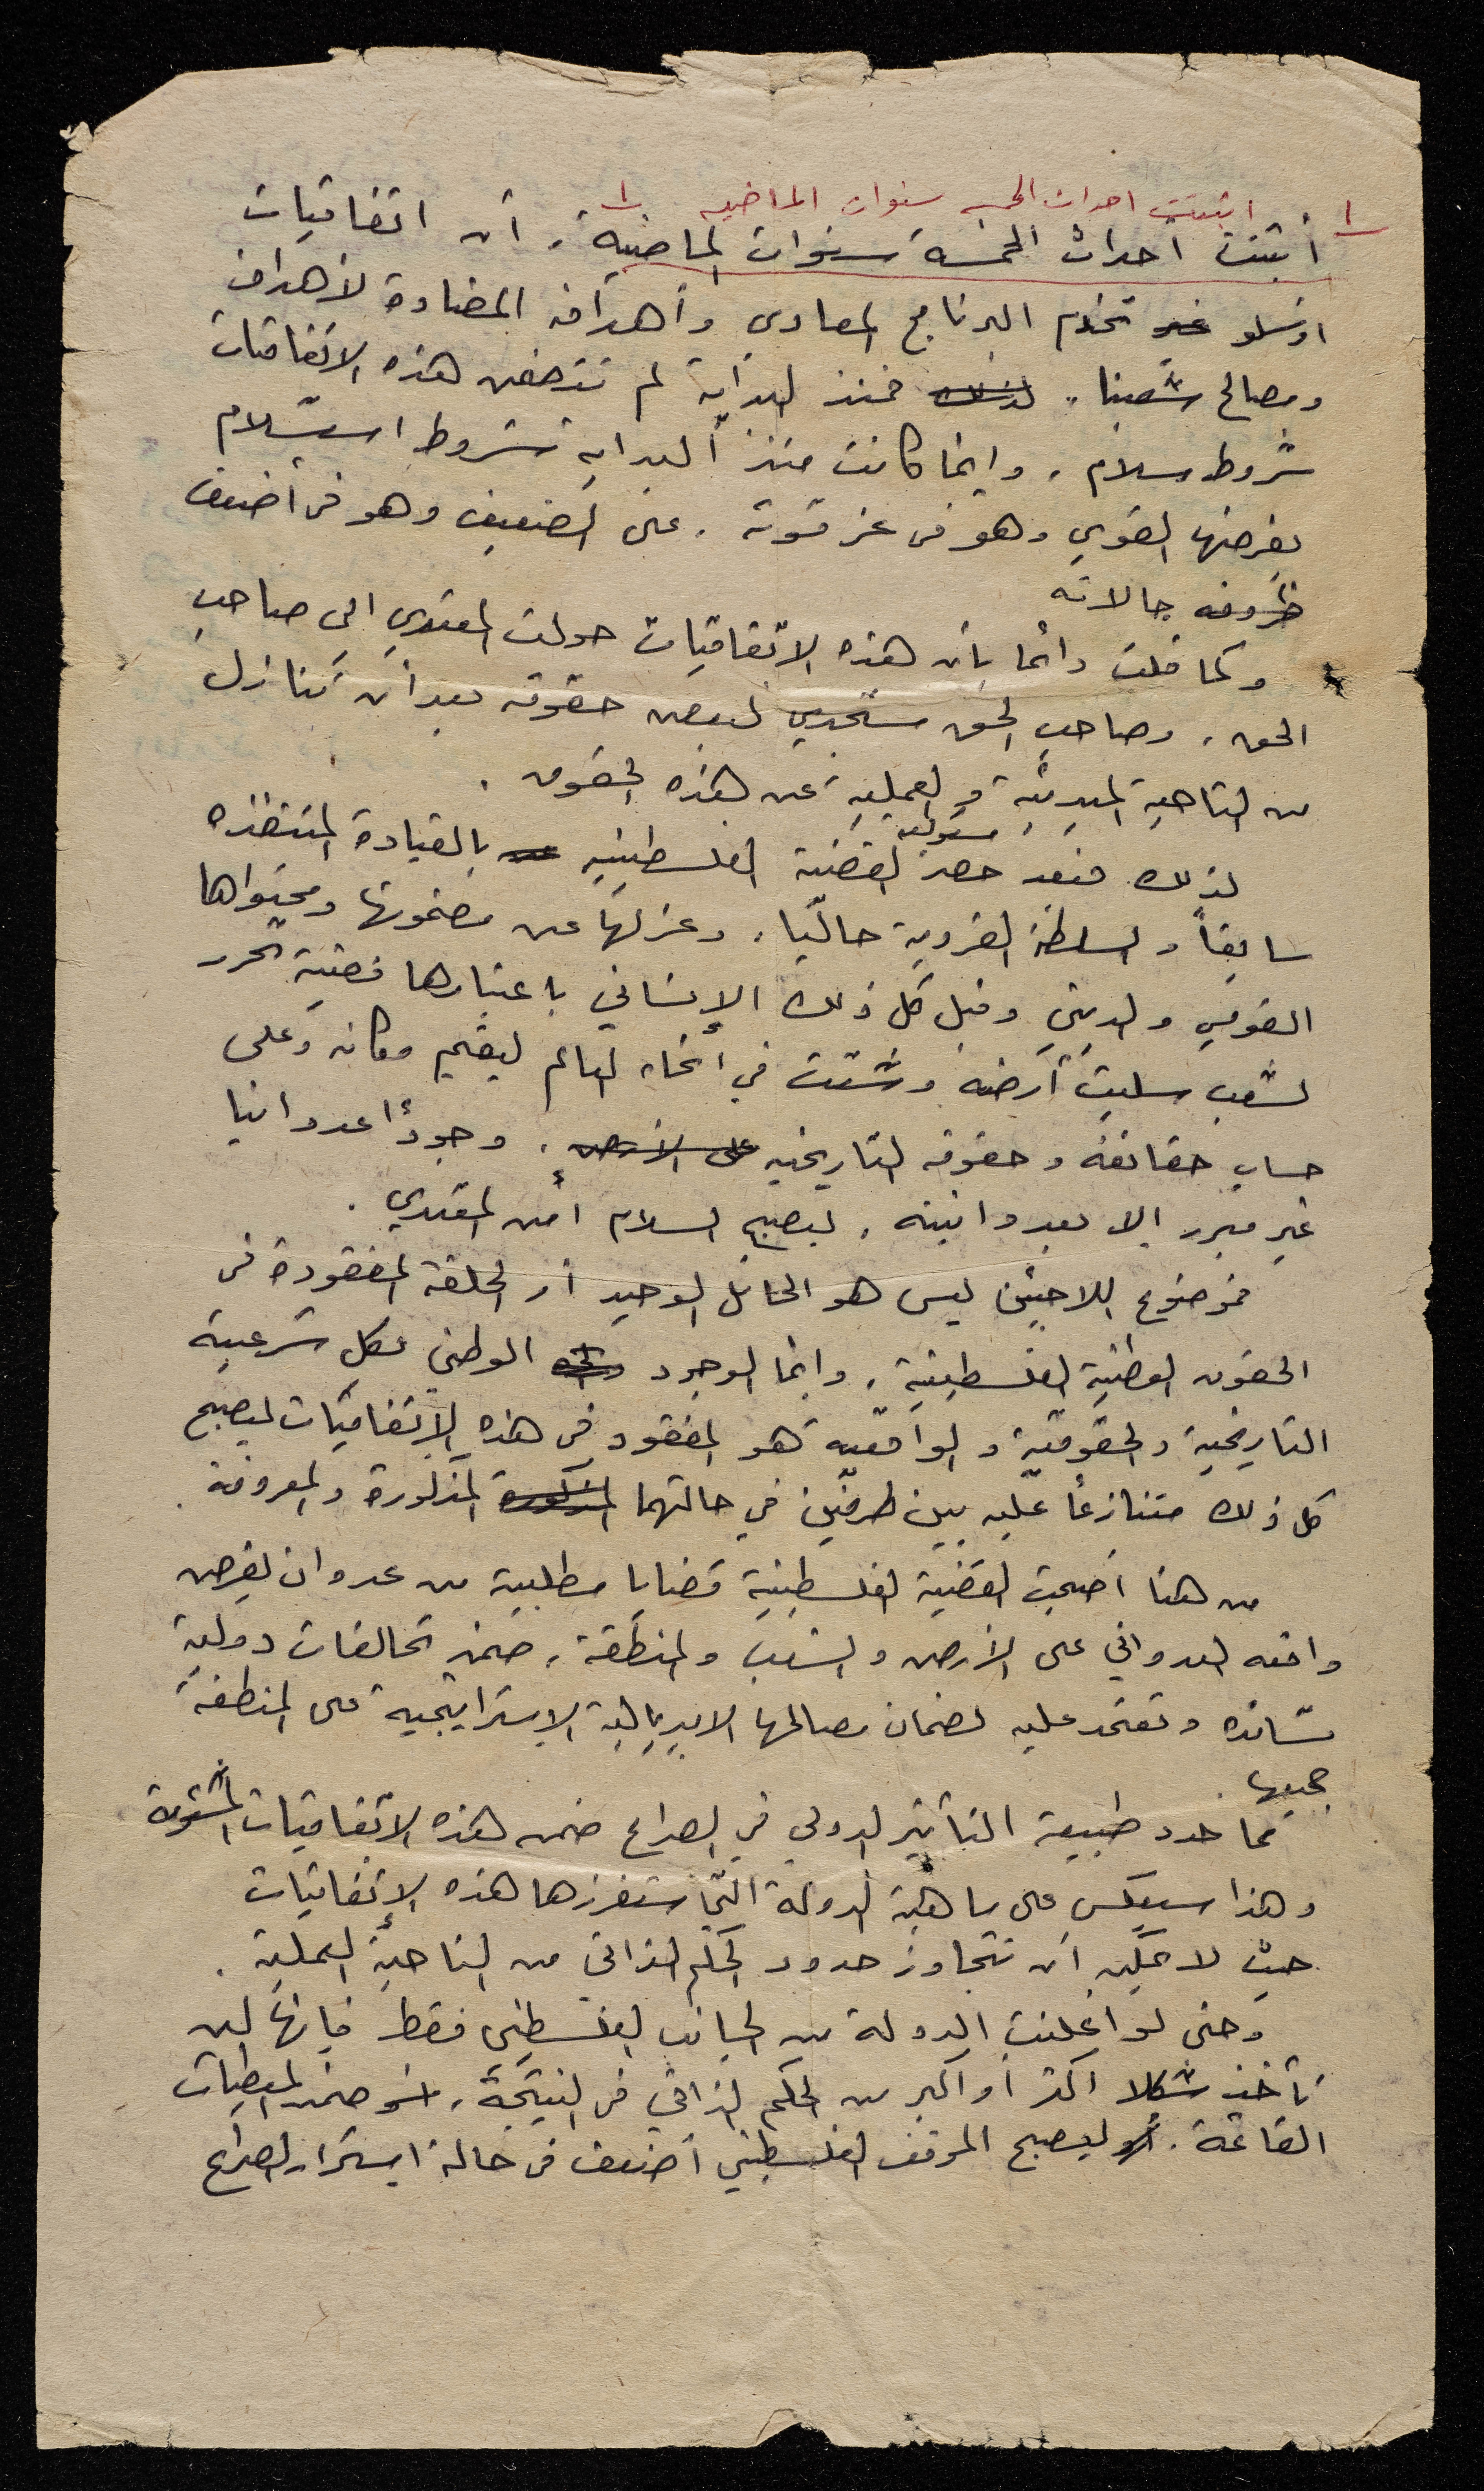 ١ اثبتت احداث الخمسه سنوات الماضيه ١
أثبتت أحداث الخمسة سنوات الماضية، أن اتفاقيات
اوسلو تخدم البرنامج المعادي وأهدافه المضادة لأهداف
ومصالح شعبنا. لذلك فمنذ البداية لم تتضمن هذه الاتفاقيات
شروط سلام، وإنما كانت منذ البداية شروط استسلام
يفرضها القوي وهو في عز قوته. على الضعيف وهو في أضعف
حالاته
وكما قلت دائما بأن هذه الاتفاقيات حولت المعتدي الى صاحب
الحق، وصاحب الحق لبعض حقوقه بعد أن تنازل
من الناحية المبدئية والعملية عن هذه الحقوق.
لذلك فبعد حصر القضية الفلسطينية بالقيادة المتنفذه
سابقاً والسلطة حالياً، وعزلها عن مضمونها ومحتواها
القومي والديني وقبل كل ذلك الإنساني باعتبارها قضية تحرر
لشعب سلبت أرضه وشتت في أنحاء العالم ليقيم مكانه وعلى
حساب حقائقه وحقوقه التاريخيه على الأرض، وجوداً عدوانيا
غير مبرر إلا بعدوانيته، ليصبح السلام أمن المعتدي.
فموضوع اللاجئين ليس هو الحائل الوحيد أو الحلقة المفقودة في
الحقوق الوطنية الفلسطينية، وإنما الوجود الوطني بكل شرعيته
التاريخية والحقوقية والواقعية هو المفقود في هذه الاتفاقيات ليصبح
كل ذلك متنازعاً عليه بين طرفين في حالتهما المذكورة المذكورة والمعروفة.
من هنا أصبحت القضية الفلسطينية قضايا مطلبية من عدوان يفرض
واقعه العدواني على الأرض والشعب والمنطقة، ضمن تحالفات دولية
تسانده وتعتمد عليه لضمان مصالحها الامبريالية الاستراتيجية على المنطقة
جميعها.
مما حدد طبيعة التأثير الدولي في الصراع ضمن هذه الاتفاقيات المشؤومة
وهذا سينعكس على ماهية الدولة التي ستفرزها هذه الاتفاقيات
حيث لا يمكن أن تتجاوز حدود الحكم الذاتي من الناحية العملية.
وحتى لو اعلنت الدولة من الجانب الفلسطيني فقط فإنها لن
تأخذ شكلا اكثر أو اكبر من الحكم الذاتي في النتيجة، ضمن المعطيات
القائمة. ليصبح الموقف الفلسطيني أضعف في حالة استمرار الصراع